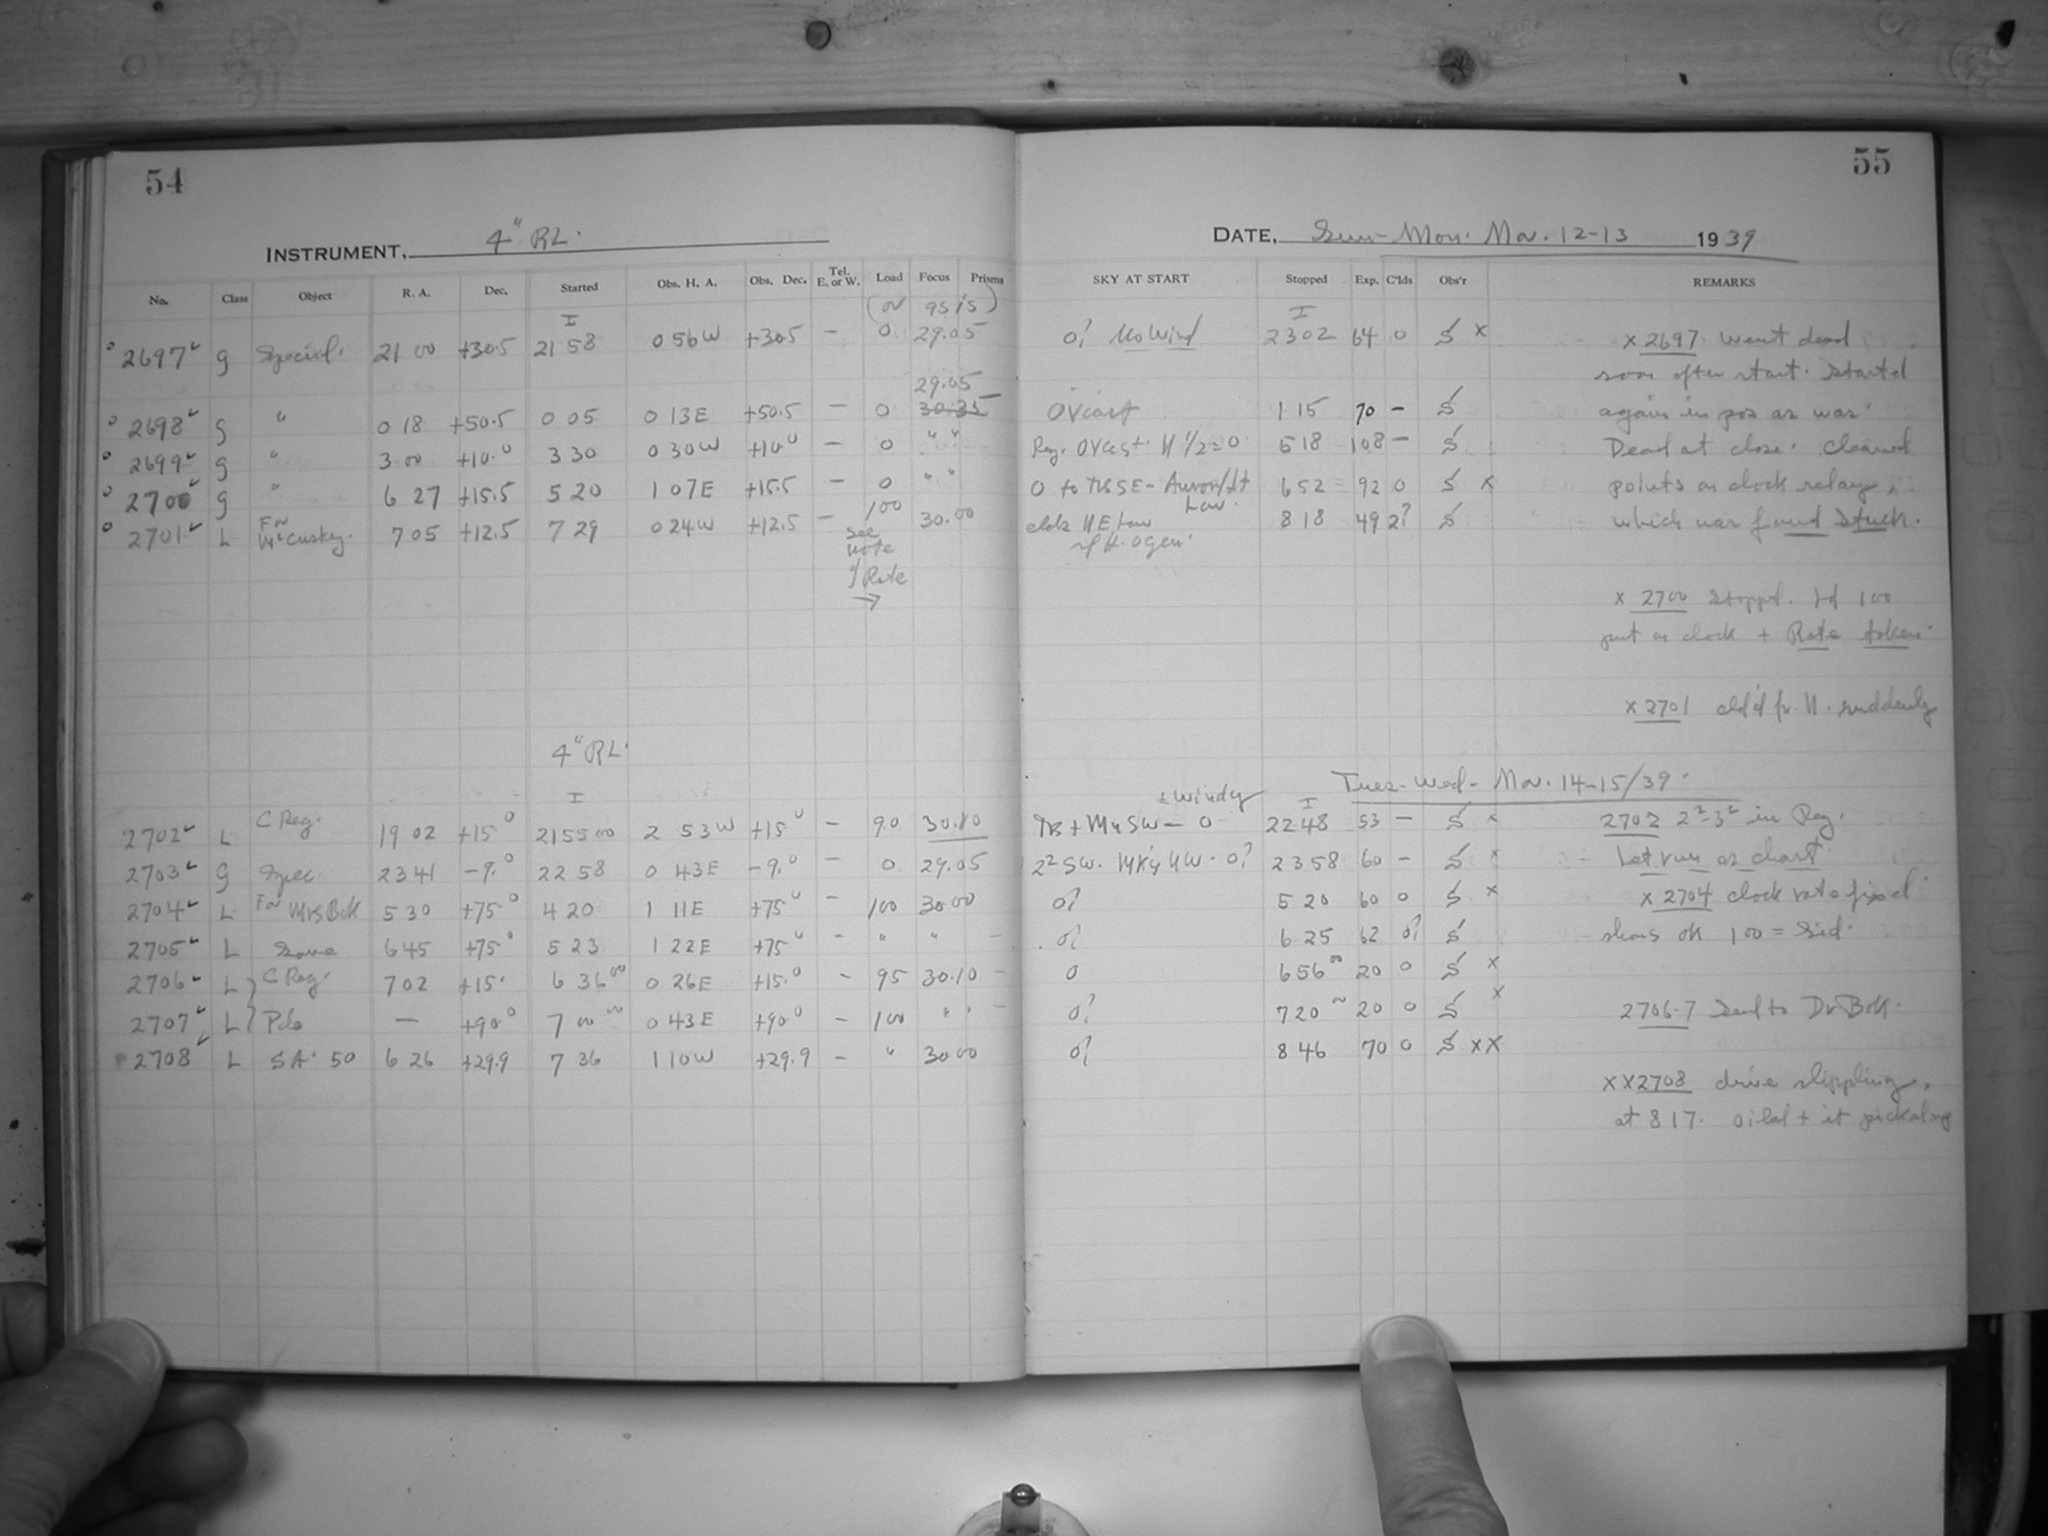 54
INSTRUMENT, 4" RL.
No. Class Object R. A. Dec. Started Obs. H. A. Obs. Dec. Tel. E. or W. Load Focus Prisms
I
2697 g Special. 21 00 +30.5 21 58 0 56 W +30.5 — 0 29.05
29.05
2698 g " 0 18 +50.5 0 05 0 13 E +50.5 — 0 30.35
2699 g " 3 00 +10.0 3 30 0 30 W +10.0 — 0 " "
2700 g " 6 27 +15.5 5 20 1 07 E +15.5 — 0 " "
2701 L For McCuskey. 7 05 +12.5 7 29 0 24 W +12.5 — 100 30.00
see
note
of Rate
→
4" RL.
I
2702 L C Reg. 19 02 +15° 21 55 00 2 53 W +15° — 90 30.10
2703 g Spec. 23 41 -9.° 22 58 0 43 E -9.° — 0 29.05
2704 L For Mrs Bok 5 30 +75° 4 20 1 11 E +75° — 100 30.00
2705 L Same 6 45 +75° 5 23 1 22 E +75° - " " —
2706 L C Reg. 7 02 +15° 6 36 00 0 26 E +15.° - 95 30.10 —
2707 L Pole — +90° 7 00 00 0 43 E +90° - 100 " " —
2708 L S A. 50 6 26 +29.9 7 36 1 10 W +29.9 - " 30.00
55
DATE, Sun-Mon. Mar. 12-13 1939
SKY AT START Stopped Exp. C'lds Obs'r REMARKS
I
0? No Wind 23 02 64 0 S x x 2697 went dead
soon after start. Started
Ovcast 1 15 70 — S again in pos as was.
Ovcast 5 18 108 — S Dead at close. Cleaned
0 to SE- Auroral Lt Low. 6 52 92 0 S x points on clock relay,
8 18 49 2? S which was found stuck.
x 2700 stoppd. Ld 100
put on clock + Rate taken.
x 2701 cld'd fr. N. suddenly
Tues-Wed- Mar. 14-15/39.
± Windy I
SW — 0 22 48 53 — S x 2702 2²-3² in Reg.
2² SW. NW - 0? 23 58 60 — S x Let run as chart.
0? 5 20 60 0 S x x 2704 clock rate fixed
0? 6 25 62 0? S shows ok 100 = Sid.
0 6 56 00 20 0 S x
0? 7 20 20 0 S x 2706-7 Send to Dr Bok.
0? 8 46 70 0 S xx
xx 2708 drive slipping,
at 8 17. oiled + it